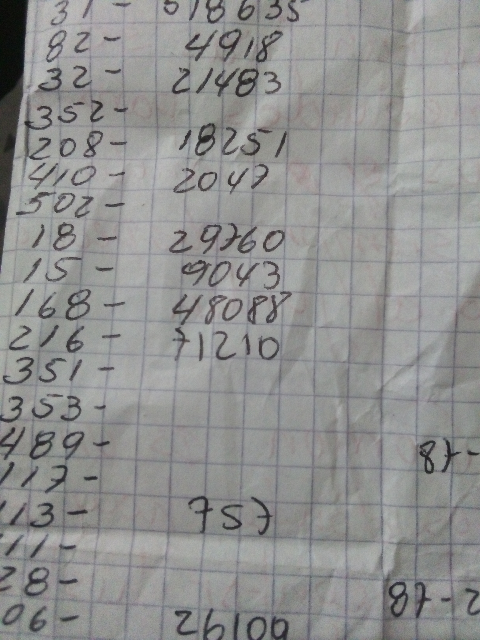 31 - 518635
82 - 4918
32 - 21483
352 -
208 - 18251
410 - 2047
502 -
18 - 29760
15 - 9043
168 - 48088
216 - 71210
351 -
353 -
489 -
87 -
117 -
113 - 757
111 -
28 -
87 - 2
06 - 26100